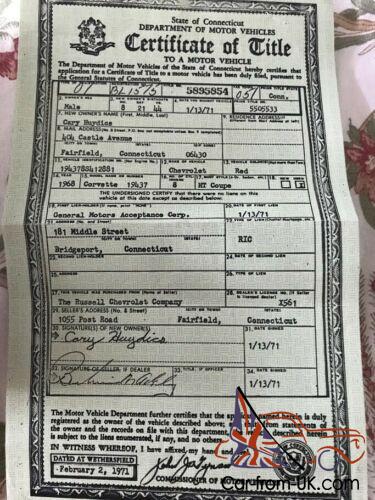 State of Connecticut
DEPARTMENT OF MOTOR VEHICLES
Certificate of Title
TO A MOTOR VEHICLE
The Department of Motor Vehicles of the State of Connecticut hereby certifies that
application for a Certificate of Title to a motor vehicle has been duly filed, pursuant to the
General Statutes of Connecticut.
BL1515 5895854 051 Conn.
Male 8 21 44 1/13/71 5505533
7. NEW OWNER'S NAME (First, Middle, Last) 9. RESIDENCE ADDRESS
Cary Huydics
8. MAIL ADDRESS
404 Castle Avenue
Fairfield, Connecticut 06430
194378S412881 Chevrolet Red
1968 Corvette 19437 8 HT Coupe
THE UNDERSIGNED CERTIFY that there were no liens on this
vehicle at this date except as described below.
General Motors Acceptance Corp. 1/13/71
181 Middle Street RIC
Bridgeport, Connecticut
25. ADDRESS 26. TYPE OF LIEN
27. THIS VEHICLE WAS PURCHASED FROM (Name of Seller) 28. DEALER'S LICENSE NO.
The Russell Chevrolet Company X561
29. SELLER'S ADDRESS (No. & Street)
1055 Post Road Fairfield, Connecticut
30. SIGNATURE(S) OF NEW OWNER(S) 31. DATE SIGNED
Cary Huydics 1/13/71
32. SIGNATURE OF SELLER, IF DEALER 33. TITLE, IF OFFICER 34. DATE SIGNED
1/13/71
The Motor Vehicle Department further certifies that the applicant named herein is duly
registered as the owner of the vehicle described above; that from statements of
the owner and the records on file with this department, described herein
is subject to the liens enumerated, if any, and no others.
IN WITNESS WHEREOF, I have affixed my hand and
DATED AT WETHERSFIELD
February 2, 1971
COMMISSIONER OF
Car-from-UK.com